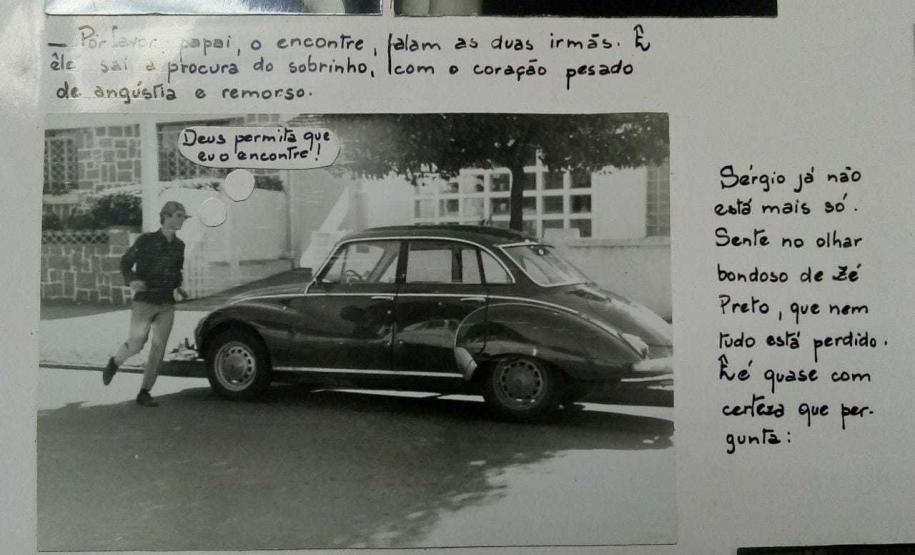 — Por favor, papai, o encontre, falam as duas irmãs. Ê
êle sai à procura do sobrinho, com o coração pesado
de angústia e remorso.
Deus permita que
eu o encontre!
Sérgio já não
está mais só.
Sente no olhar
bondoso de Zé
Preto, que nem
tudo está perdido.
Ê é quase com
certeza que per-
gunta: